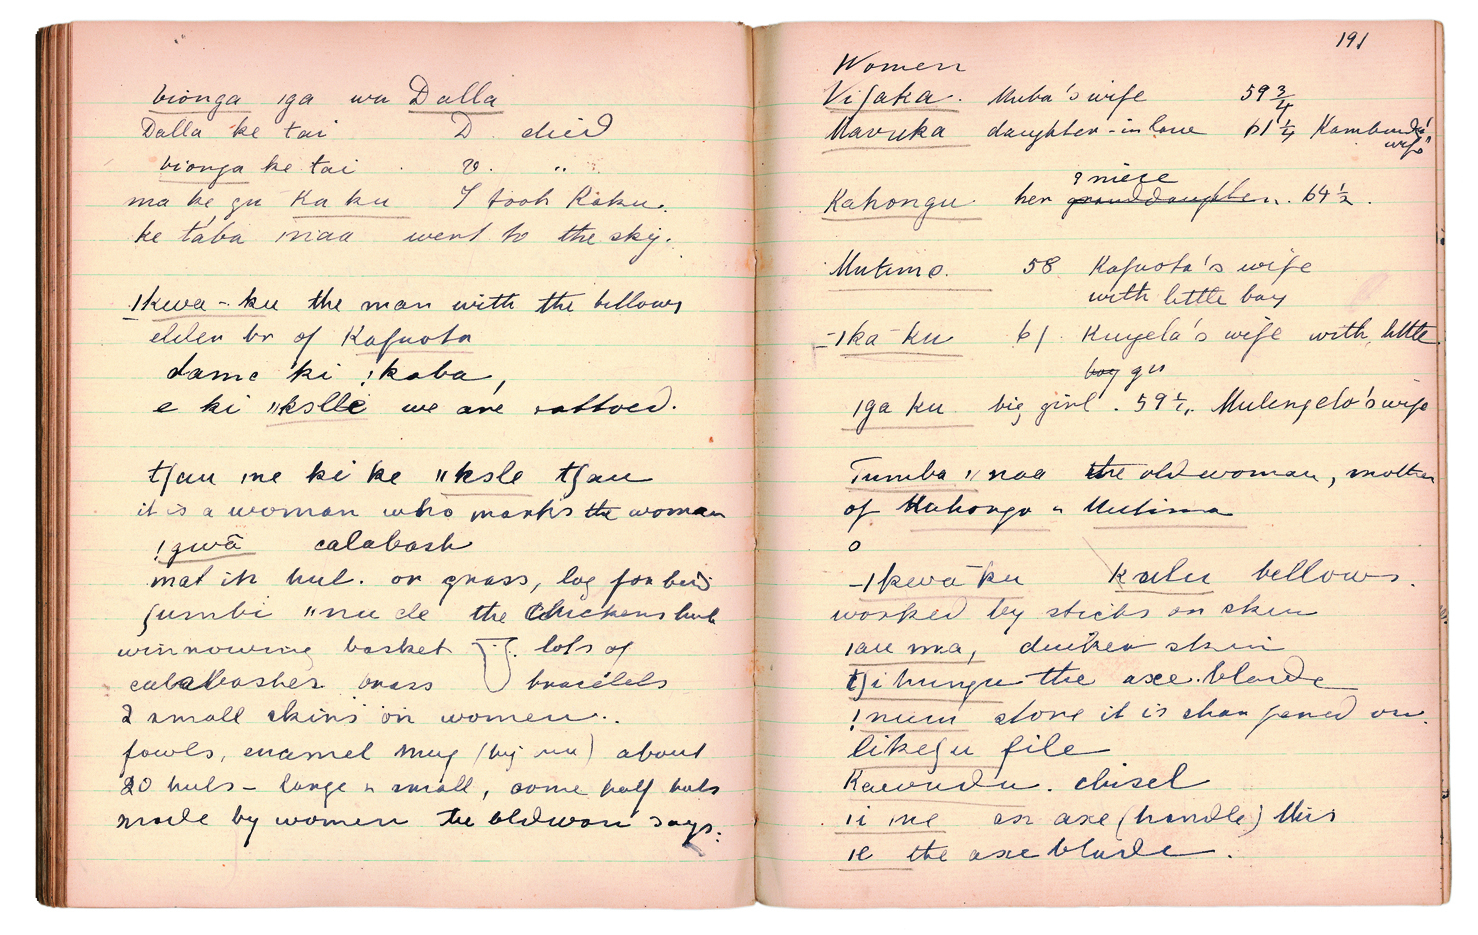 vionga iga wu Dalla
Dalla ke tai D. died
vionga ke tai . v. "
ma ke gu Kaku I took Kaku.
ke taba maa went to the sky.
ǀkwa-ku the man with the bellows
elder br of Kafuota
dame ki !kaba,
e ki ǁkslle we are
tʃau ǀne ki ke ǁksle tʃau
it is a woman who marks the woman
!gwā calabash
mat in hut. or grass, log for bed
ʃumbi ǁnu de the chickens hut
winnowing basket lots of
calabashes brass bracelets
2 small skins on women..
fowls, enamel mug about
20 huts - large " small, some half huts
made by women the old woman says.
191
Women
Viʃaka. Muba's wife 59 3/4
Mavuka daughter-in-law 61 1/4 Kambunda's wife
Kahongu her granddaughter ? niece 64 1/2.
Mutimo. 58 Kafuota's wife
with little boy
-ǀka ku 61. Kuyela's wife with little
boy gu
ǀga ku big girl. 59 Mulengelo's wife
Tumba ǁnaa the old woman, mother
of Kahongo " Mutima
o
-ǀkwā ku Kulu bellows.
worked by sticks on skin
ǀau ma, duiker skin
tʃihungu the axe blade
!num stone it is sharpened on.
likeʃu file
Kawundu. chisel
ǀi ne an axe (handle) this
ǀe the axe blade.